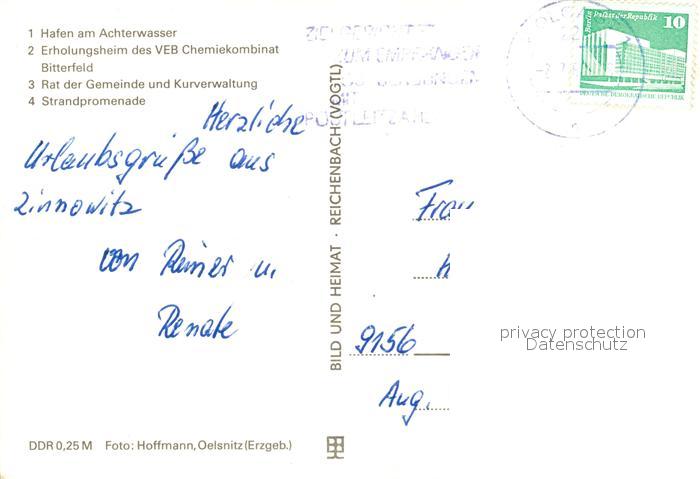 1 Hafen am Achterwasser
2 Erholungsheim des VEB Chemiekombinat
Bitterfeld
3 Rat der Gemeinde und Kurverwaltung
4 Strandpromenade
Herzliche
Urlaubsgrüße aus
Zinnowitz
von Reiner u.
Renate
DDR 0,25 M Foto: Hoffmann, Oelsnitz (Erzgeb.)
BILD UND HEIMAT · REICHENBACH (VOGTL)
Berlin Palast der Republik 10
DEUTSCHE DEMOKRATISCHE REPUBLIK
POSTLEITZAHL
Frau
9156
Aug.
privacy protection
Datenschutz